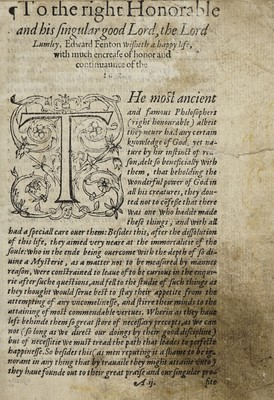 ¶To the right Honorable
and his singular good Lord, the Lord
Lumley, Edward Fenton wisheth a happy life,
with much encrease of honor and
continuance of the
THe most ancient
and famous Philosophers
(right honourable) albeit
they neuer had any certain
knowledge of God, yet
nature by hir instinct of rea-
son, delt so beneficially with
them, that beholding the
wonderful power of God in
all his creatures, they dou-
ted not to cōfesse that there
was one who hadde made
those things, and with all
had a speciall care ouer them: Besides this, after the dissolution
of this life, they aimed very neare at the immortalitie of the
soule: who in the ende being ouercome with the depth of so di-
uine a Mysterie, as a matter not to be measured by manns
reason, were constrained to leaue of to be curious in the enqui-
rie after suche questions, and fell to the studie of such things as
they thought would serue best to stay their appetite from the
attempting of any vncomelinesse, and stirre their minds to the
attaining of most commendable vertues. Wherin as they haue
left behinde them so great store of necessary precepts, as we can
not (so long as we direct our doings by their good discipline)
but of necessitie we must tread the path that leades to perfecte
happinesse. So besides this (as men reputing it a shame to be ig-
norant in any thing that by trauaile they might attaine vnto)
they haue founde out to their great praise and our singular pro-
A.ij. fite